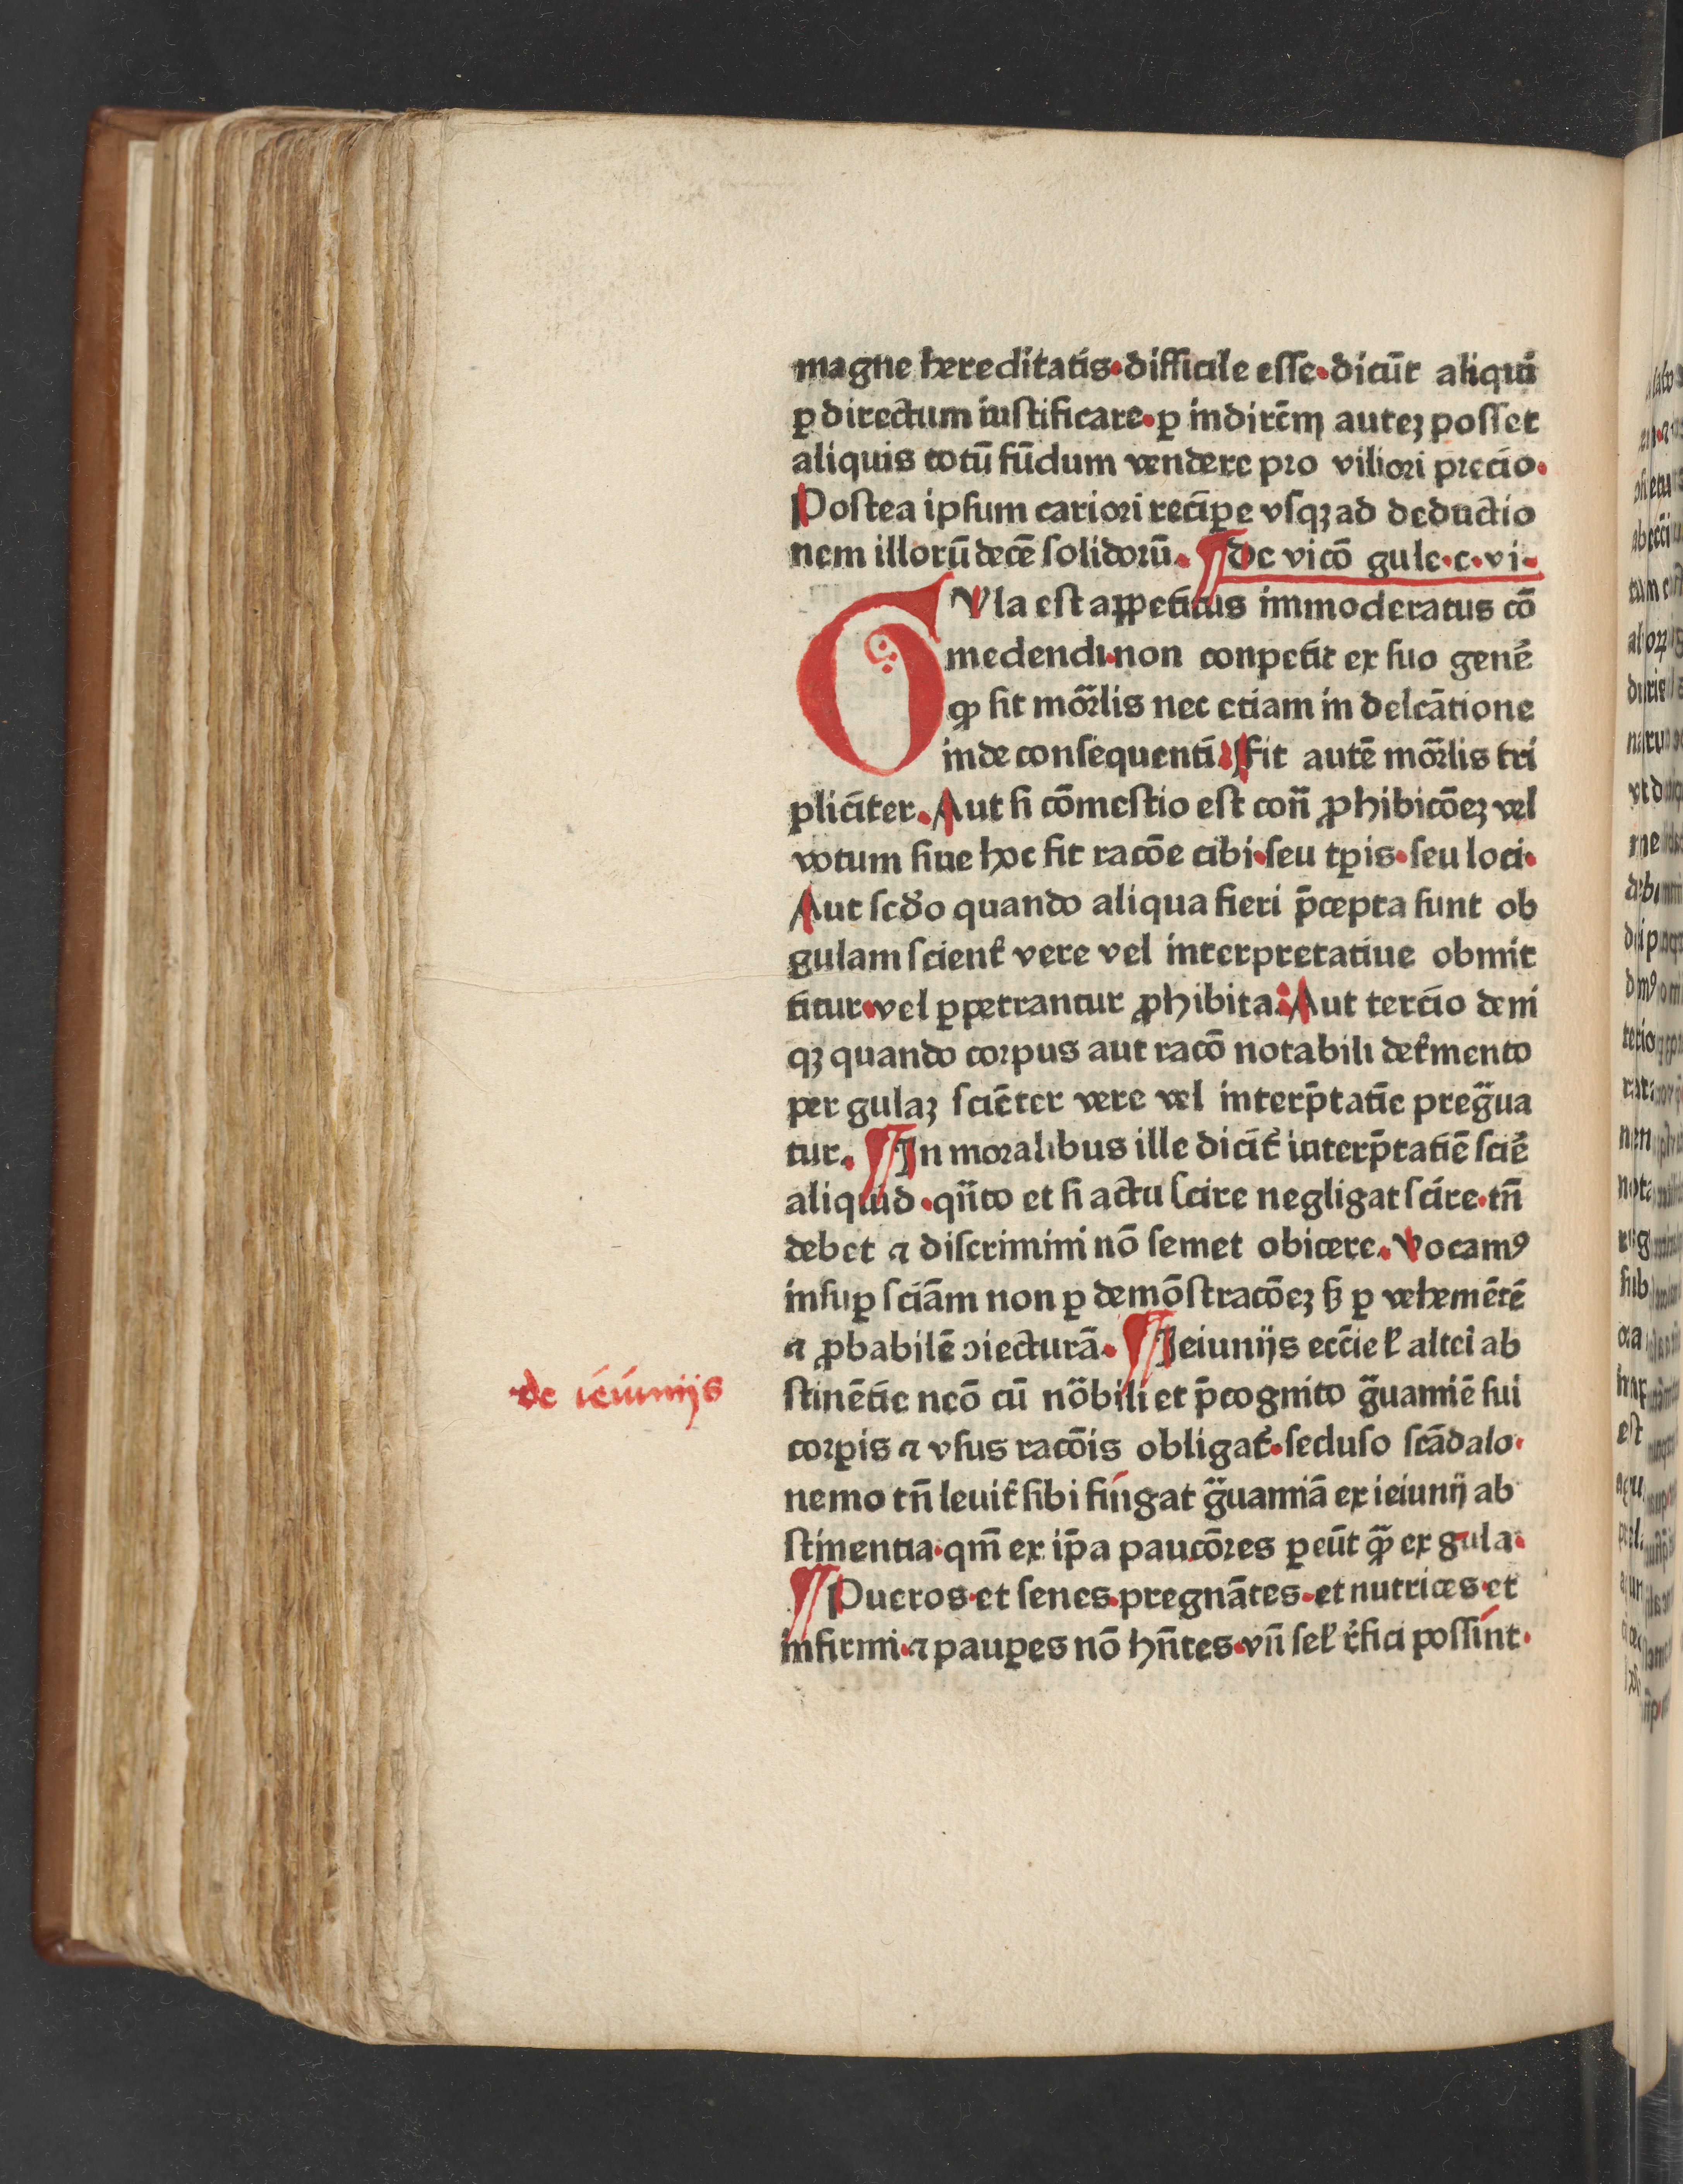 magne hereditatis·difficile esse·dicūt aliqui
ꝑ directum iustificare·ꝑ indirēm autēꝫ posset
aliquis totū fūdum vendere pro viliori precio·
Postea ipsum cariori recipe vsqꝫ ad deductio
nem illorū decē solidorū· ¶ De vicō gule·c·vi·
GVla est appetitus immoderatus cō
medendi·non conpetit ex suo genē
ꝙ sit mōrlis nec etiam in delcātione
inde consequenti· Fit autē mōrlis tri
pliciter. Aut si cōmestio est con̄ ꝓhibicōeꝫ vel
votum siue hoc sit racōe cibi·seu tꝑis·seu loci·
Aut scd̄o quando aliqua fieri p̄cepta sunt ob
gulam scient̄ vere vel interpretatiue obmit
titur·vel ꝑpetrantur ꝓhibita: Aut tercio deni
qꝫ quando corpus aut racō notabili det̄mento
per gulaꝫ sciēter vere vel interp̄tatīe preḡua
tur. ¶ In moralibus ille dicit̄ interp̄tatiē sciē
aliquid·qn̄to et si actu scire negligat scire·tn̄
debet ⁊ discrimini nō semet obicere. Vocamꝰ
insuꝑ sciām non ꝑ demōstracōeꝫ sꝫ ꝑ vehemētē
⁊ ꝓbabilē ↄiecturā· ¶ Ieiunijs ecc̄ie ł altei ab
de ieiunijs
stinētie neō cū nōbili et p̄cognito ḡuamiē sui
corꝑis ⁊ vsus racōis obligat̄·secluso scādalo·
nemo tn̄ leuit̄ sibi fingat ḡuamiā ex ieiunij ab
stinentia·qm̄ ex ip̄a paucōres ꝑeūt q̄ ex gula·
¶ Pueros·et senes·pregnātes·et nutrices·et
infirmi·⁊ pauꝑes nō hn̄tes·vn̄ seł r̄fici possint·